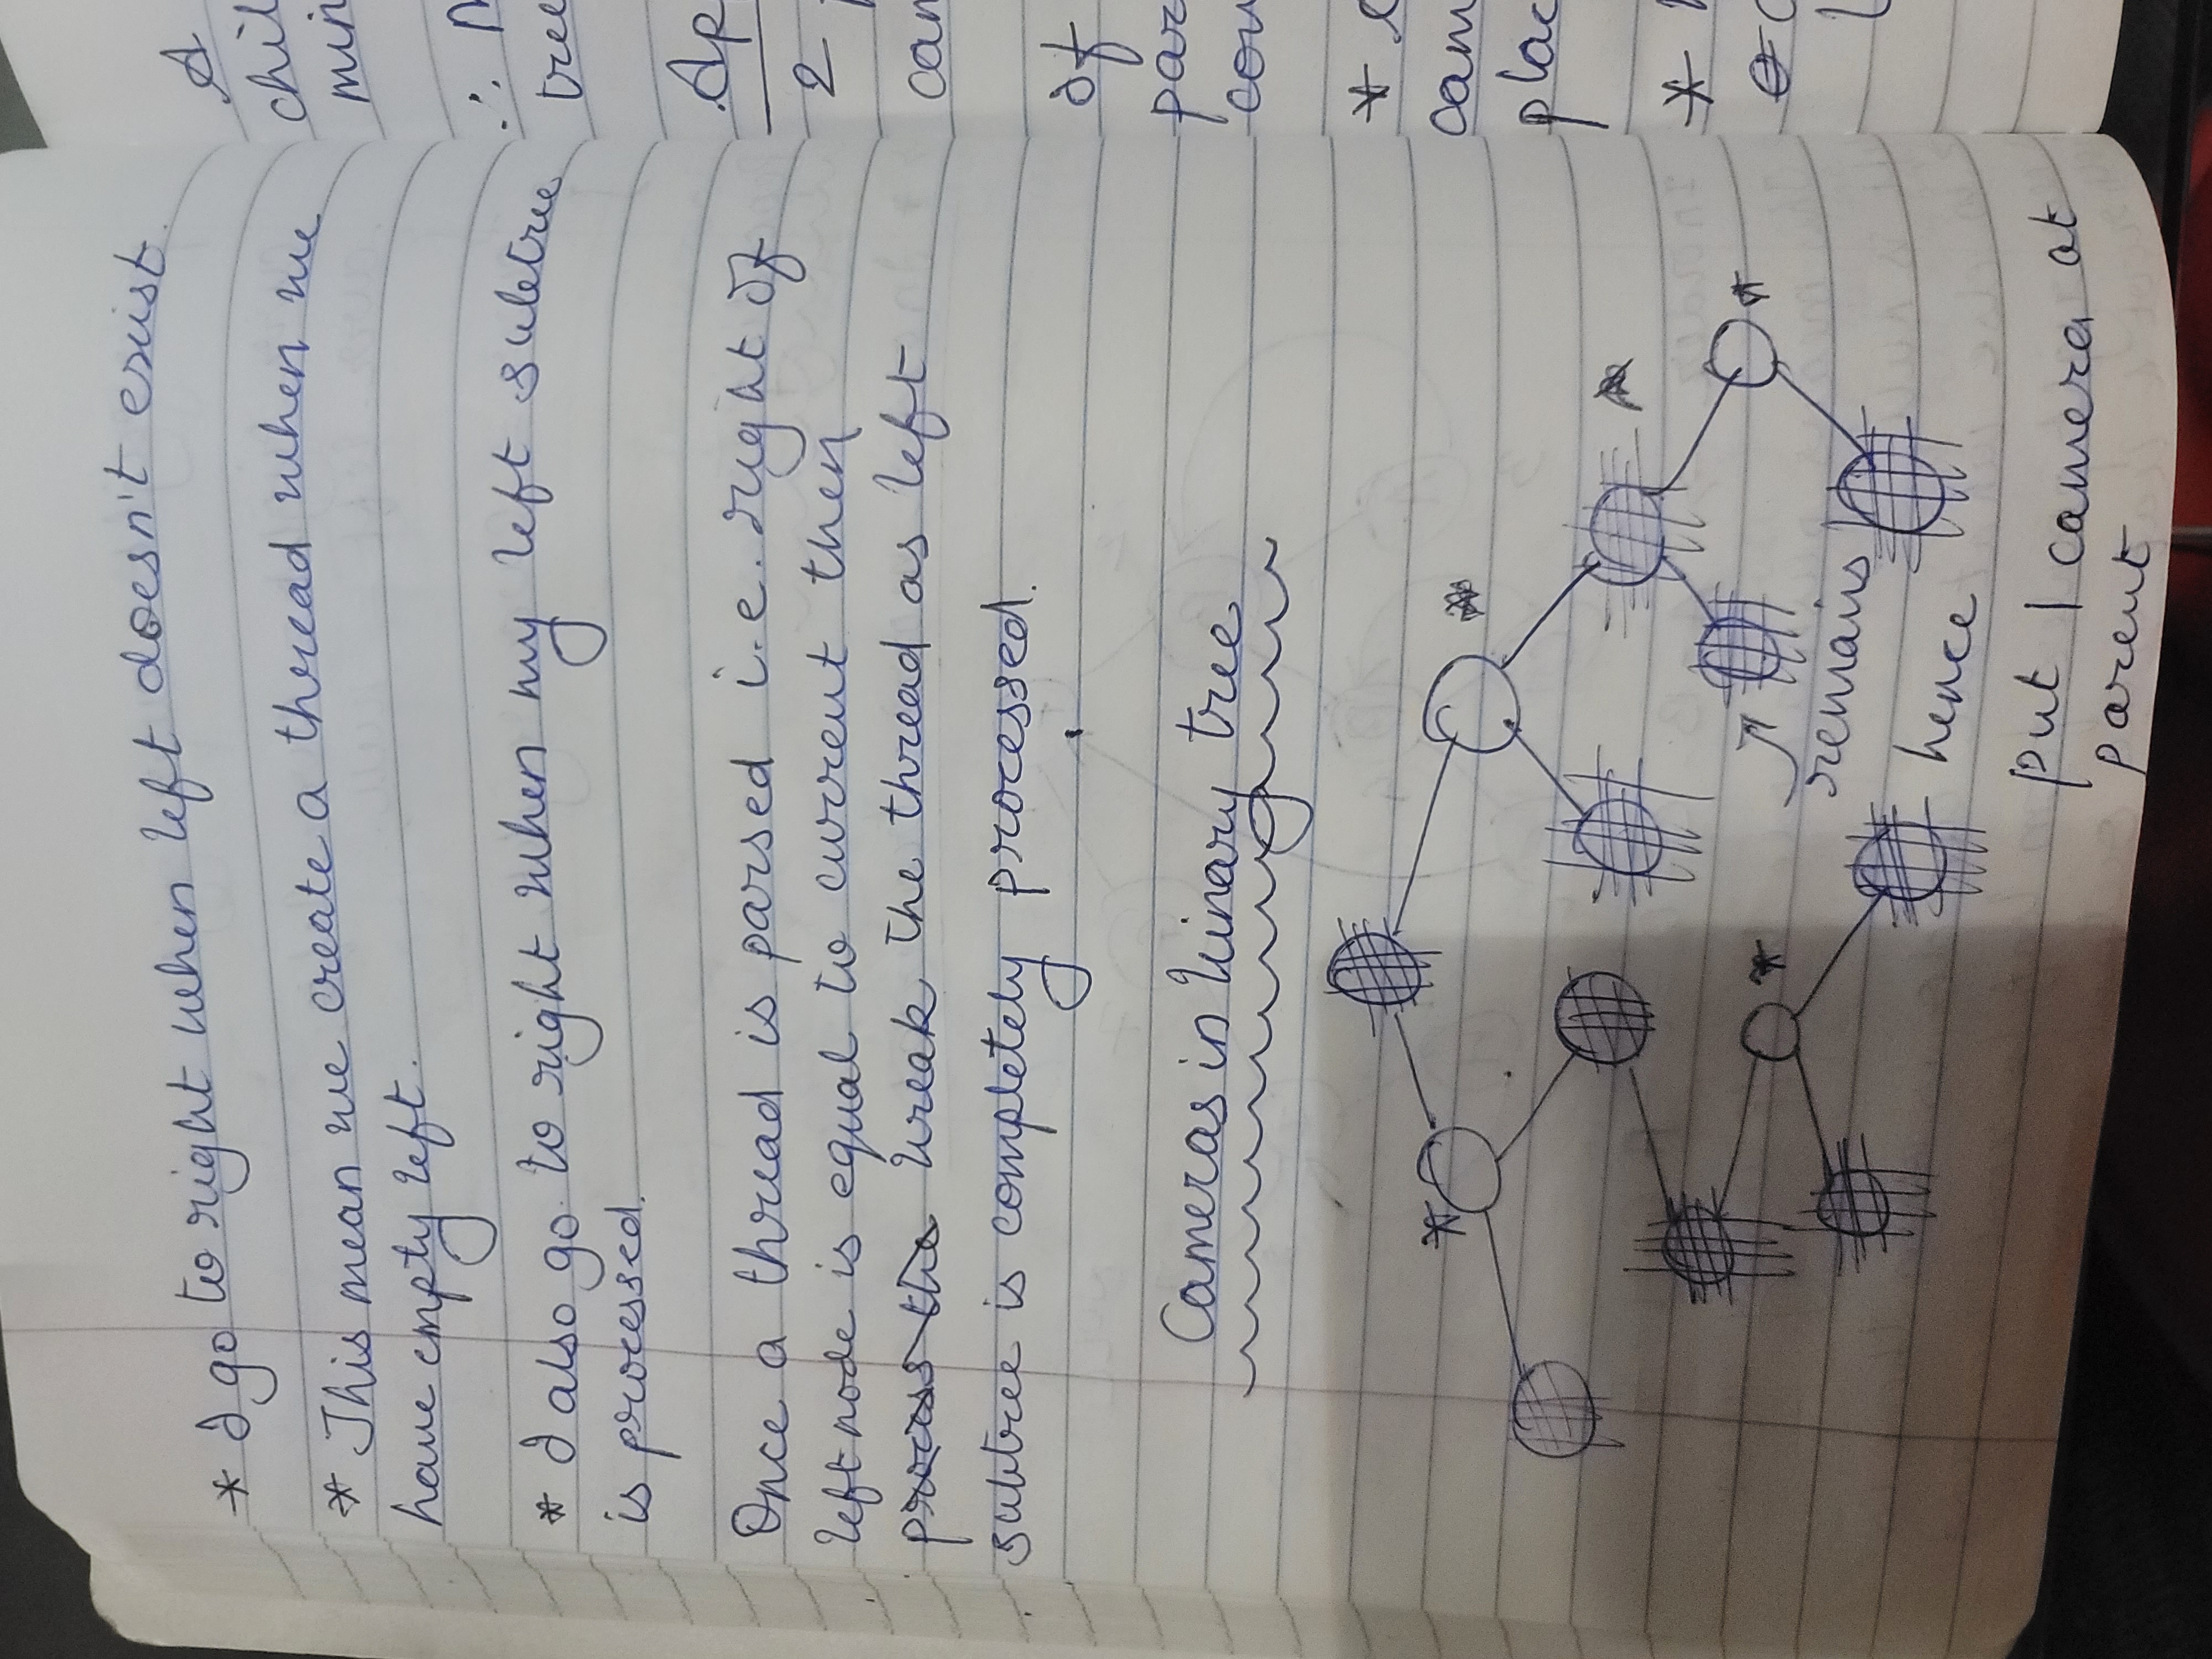 * I go to right when left doesn't exist.
* This mean we create a thread when we
have empty left.
* I also go to right when my left subtree
is processed.
Once a thread is parsed i.e. right of
left node is equal to current then
process the break the thread as left
subtree is completely processed.
Cameras in binary tree
*
*
*
remains
hence
put 1 camera at
parent
A
chil
min
tree
Ap
2
cam
of
par
cou
*
cam
plac
*